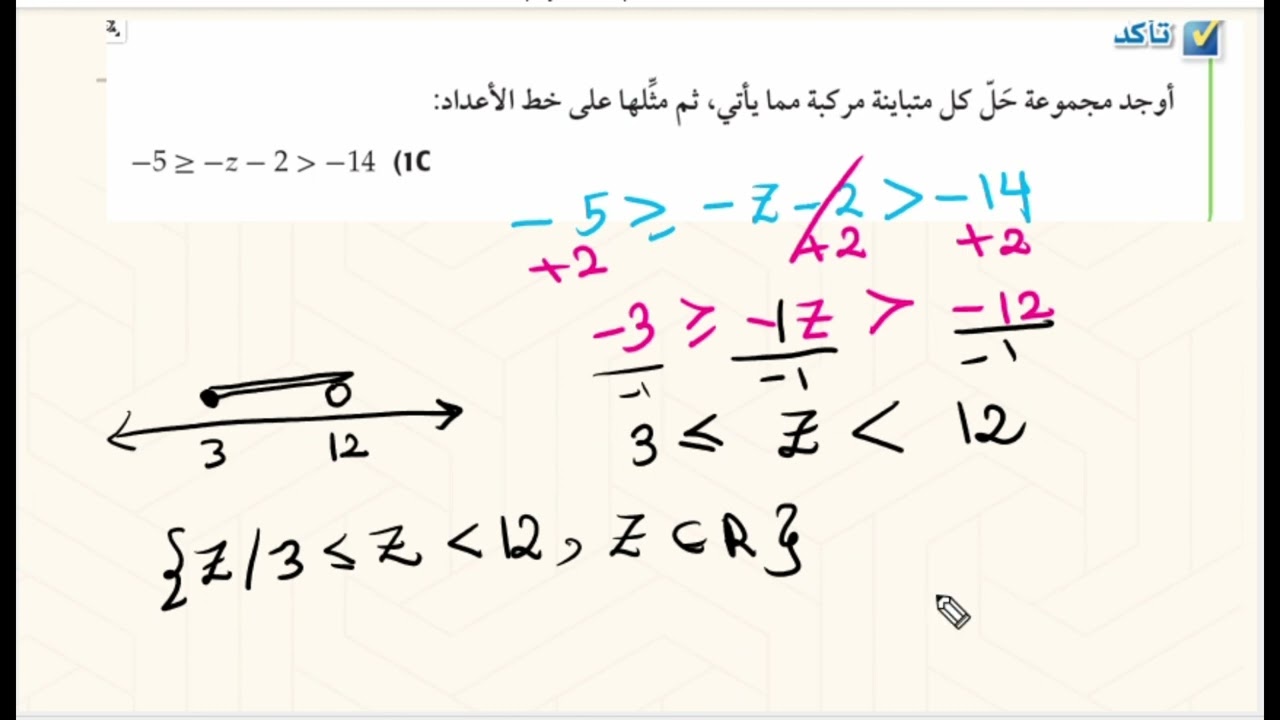 تأكد
أوجد مجموعة حَلّ كل متباينة مركبة مما يأتي، ثم مثِّلها على خط الأعداد:
−5 ≥ −z − 2 > −14 (1C
− 5 ≥ − z − 2 > − 14
+2 +2 +2
−3 ≥ −1z > −12
−1 −1 −1
3 ≤ z < 12
3 12
{z/3 ≤ z < 12, z ⊂ R}